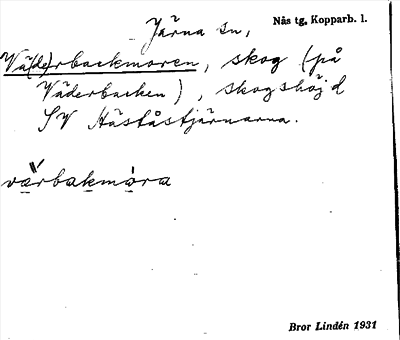 Järna sn, Nås tg, Kopparb. l.
Vä(de)rbackmoren, skog (på
Väderbacken), skogshöjd
SV Häståstjärnarna.
värbakmòra
Bror Lindén 1931